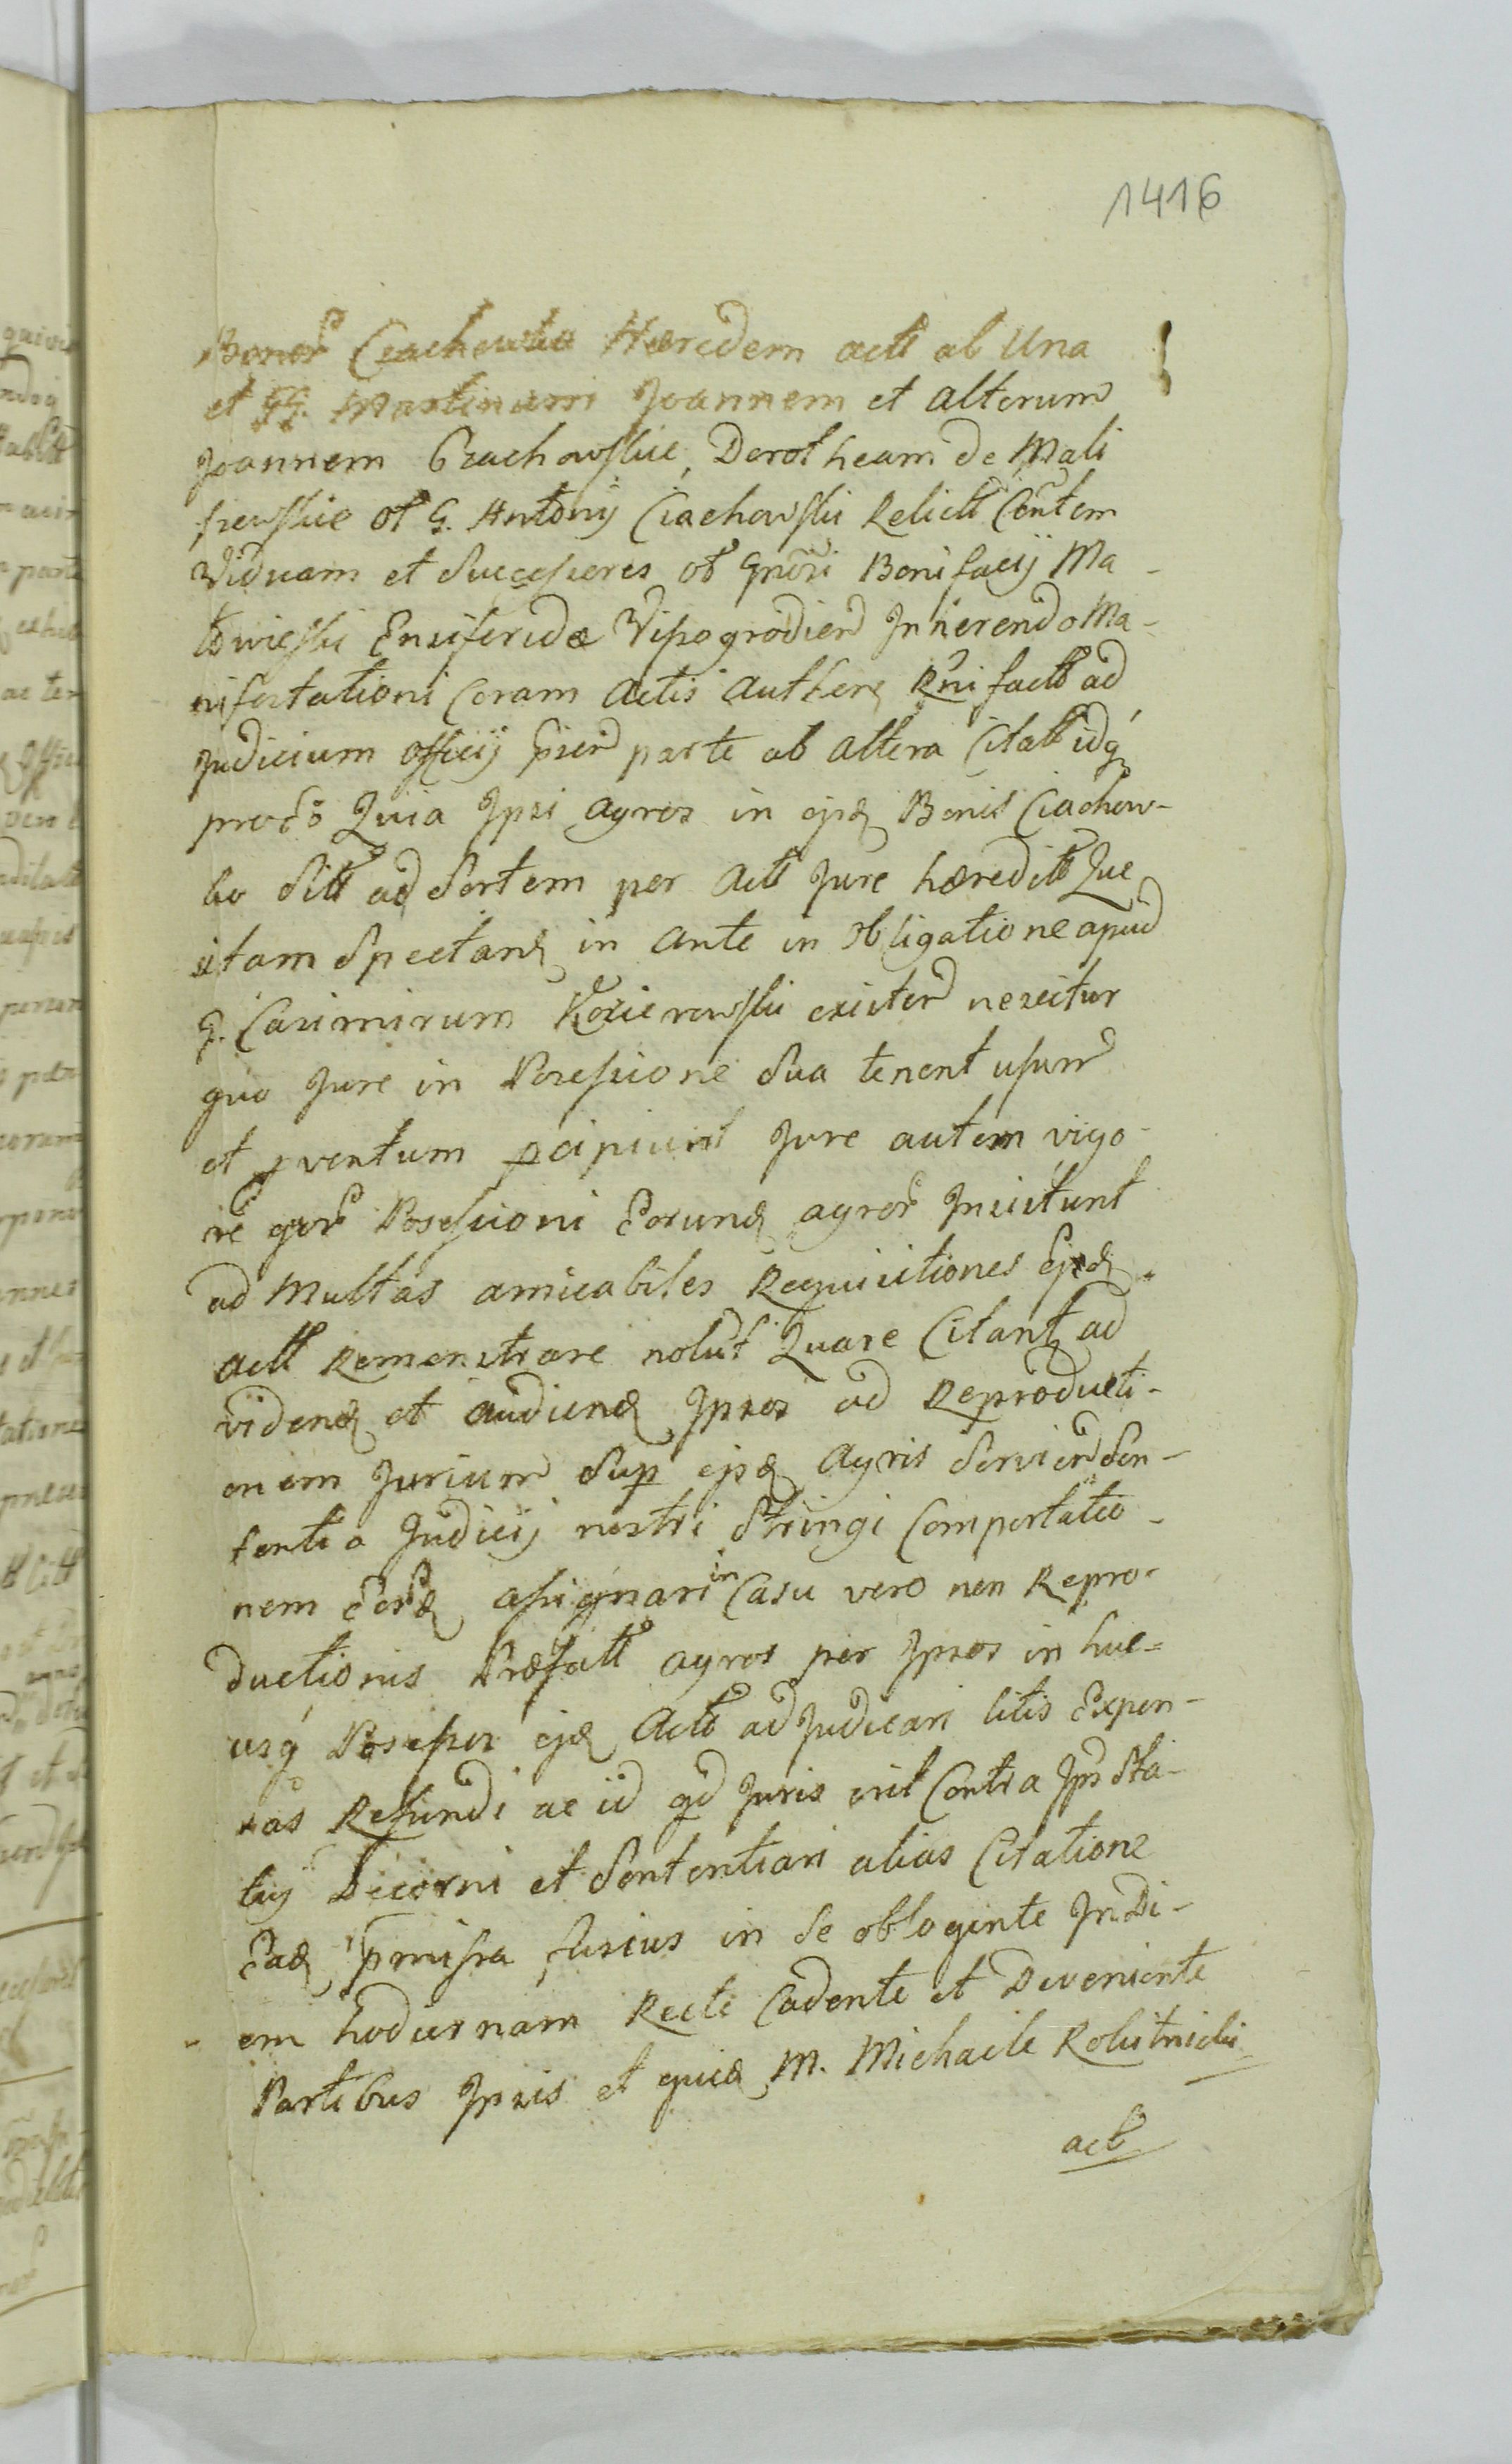 1416
Bonor Ciachowko Hæredem act ab Una
et GG. Martinum Joannem et alterum
Joannem Czachowskie, Dorotheam de Mali
szewskie ol G. Antonij Ciachowski Relict Contem
Viduam et Successores ol Gnosi Bonifacij Ma-
kowieski Ensiferidæ Vissogrodien Inhærendo Ma-
nifestationi Coram Actis Authen Rni fact ad
Judicium Officij psen parte ab altera Citatt idq
pro eo Quia Ipsi agros in ejsd Bonis Ciachow-
ko Sitt ad Sortem per Act Jure hæredit Que
sitam Spectand in ante in Obligatione apud
G. Casimirum Kozierowski existen nescitur
quo Jure in Possessione Sua tenent usum
et pventum pcipiunt Jure autem vigo-
re quor Possessioni Eorund agror Insistunt
ad Multas amicabiles Requisitiones Ejsd
Act Remonstrare nolut Quare Citant ad
videnđ et audienđ Ipsos ad Reproducti-
onem Jurium Sup ejsd Agris Servien Sen-
tentia Judicij nostri Stringi Comportatio-
nem Eord assignari in Casu vero non Repro-
ductionis Præfatt agros per Ipsos in huc=
usq Possessos ejd Act adjudicari litis Expen-
sas Refundi ac id qd Juris erit Contra Ips Sta-
tuj Decerni et Sententiari alias Citatione
Ead pmissa fusius in Se obloqente In Di-
em hodiernam Recte Cadente et Deveniente
Partibus Ipsis et quid M. Michaele Rokitnicki
act